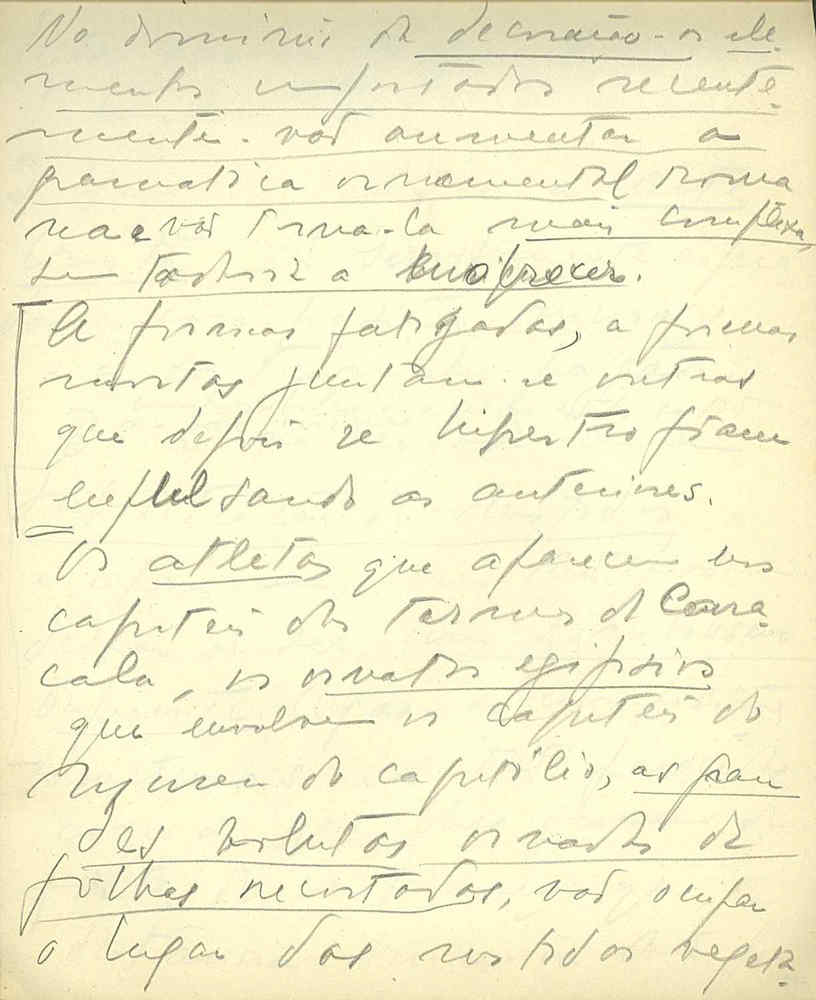 No dominio da decoração - os ele-
mentos importados recente-
mente - vão aumentar a
gramatica ornamental roma
na e vão torna-la mais complexa,
sem todavia a
A formas fatigadas, a formas
mortas juntam-se outras
que depois se hipertrofiam
expulsando as anteriores.
Os atletas que aparecem nos
capiteis das termas de Cara-
cala, os ornatos egipsios
que envolvem os capiteis do
museu do capitólio, as gran
des volutas ornadas de
folhas recortadas, vão ocupar
o lugar das vegeta-